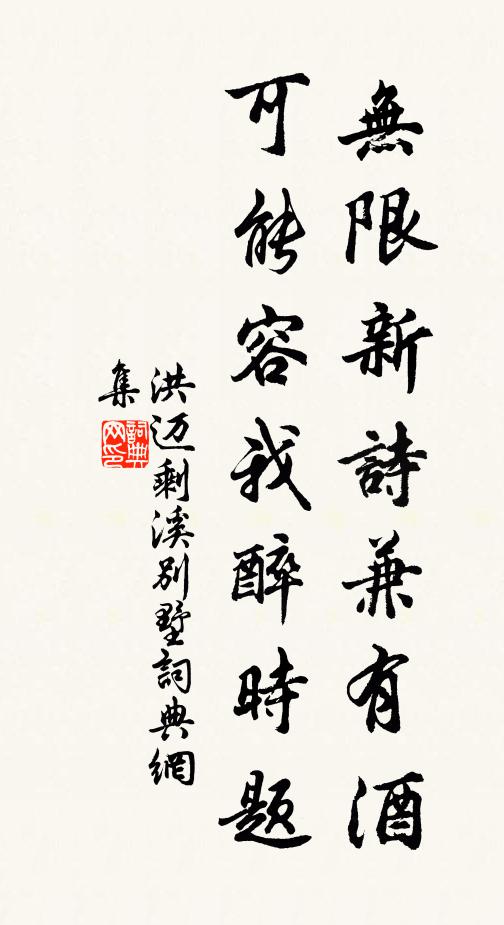 無限新詩兼有酒
可能容我醉時题
洪迈剩溪别墅詞典網
集
詞典
网印